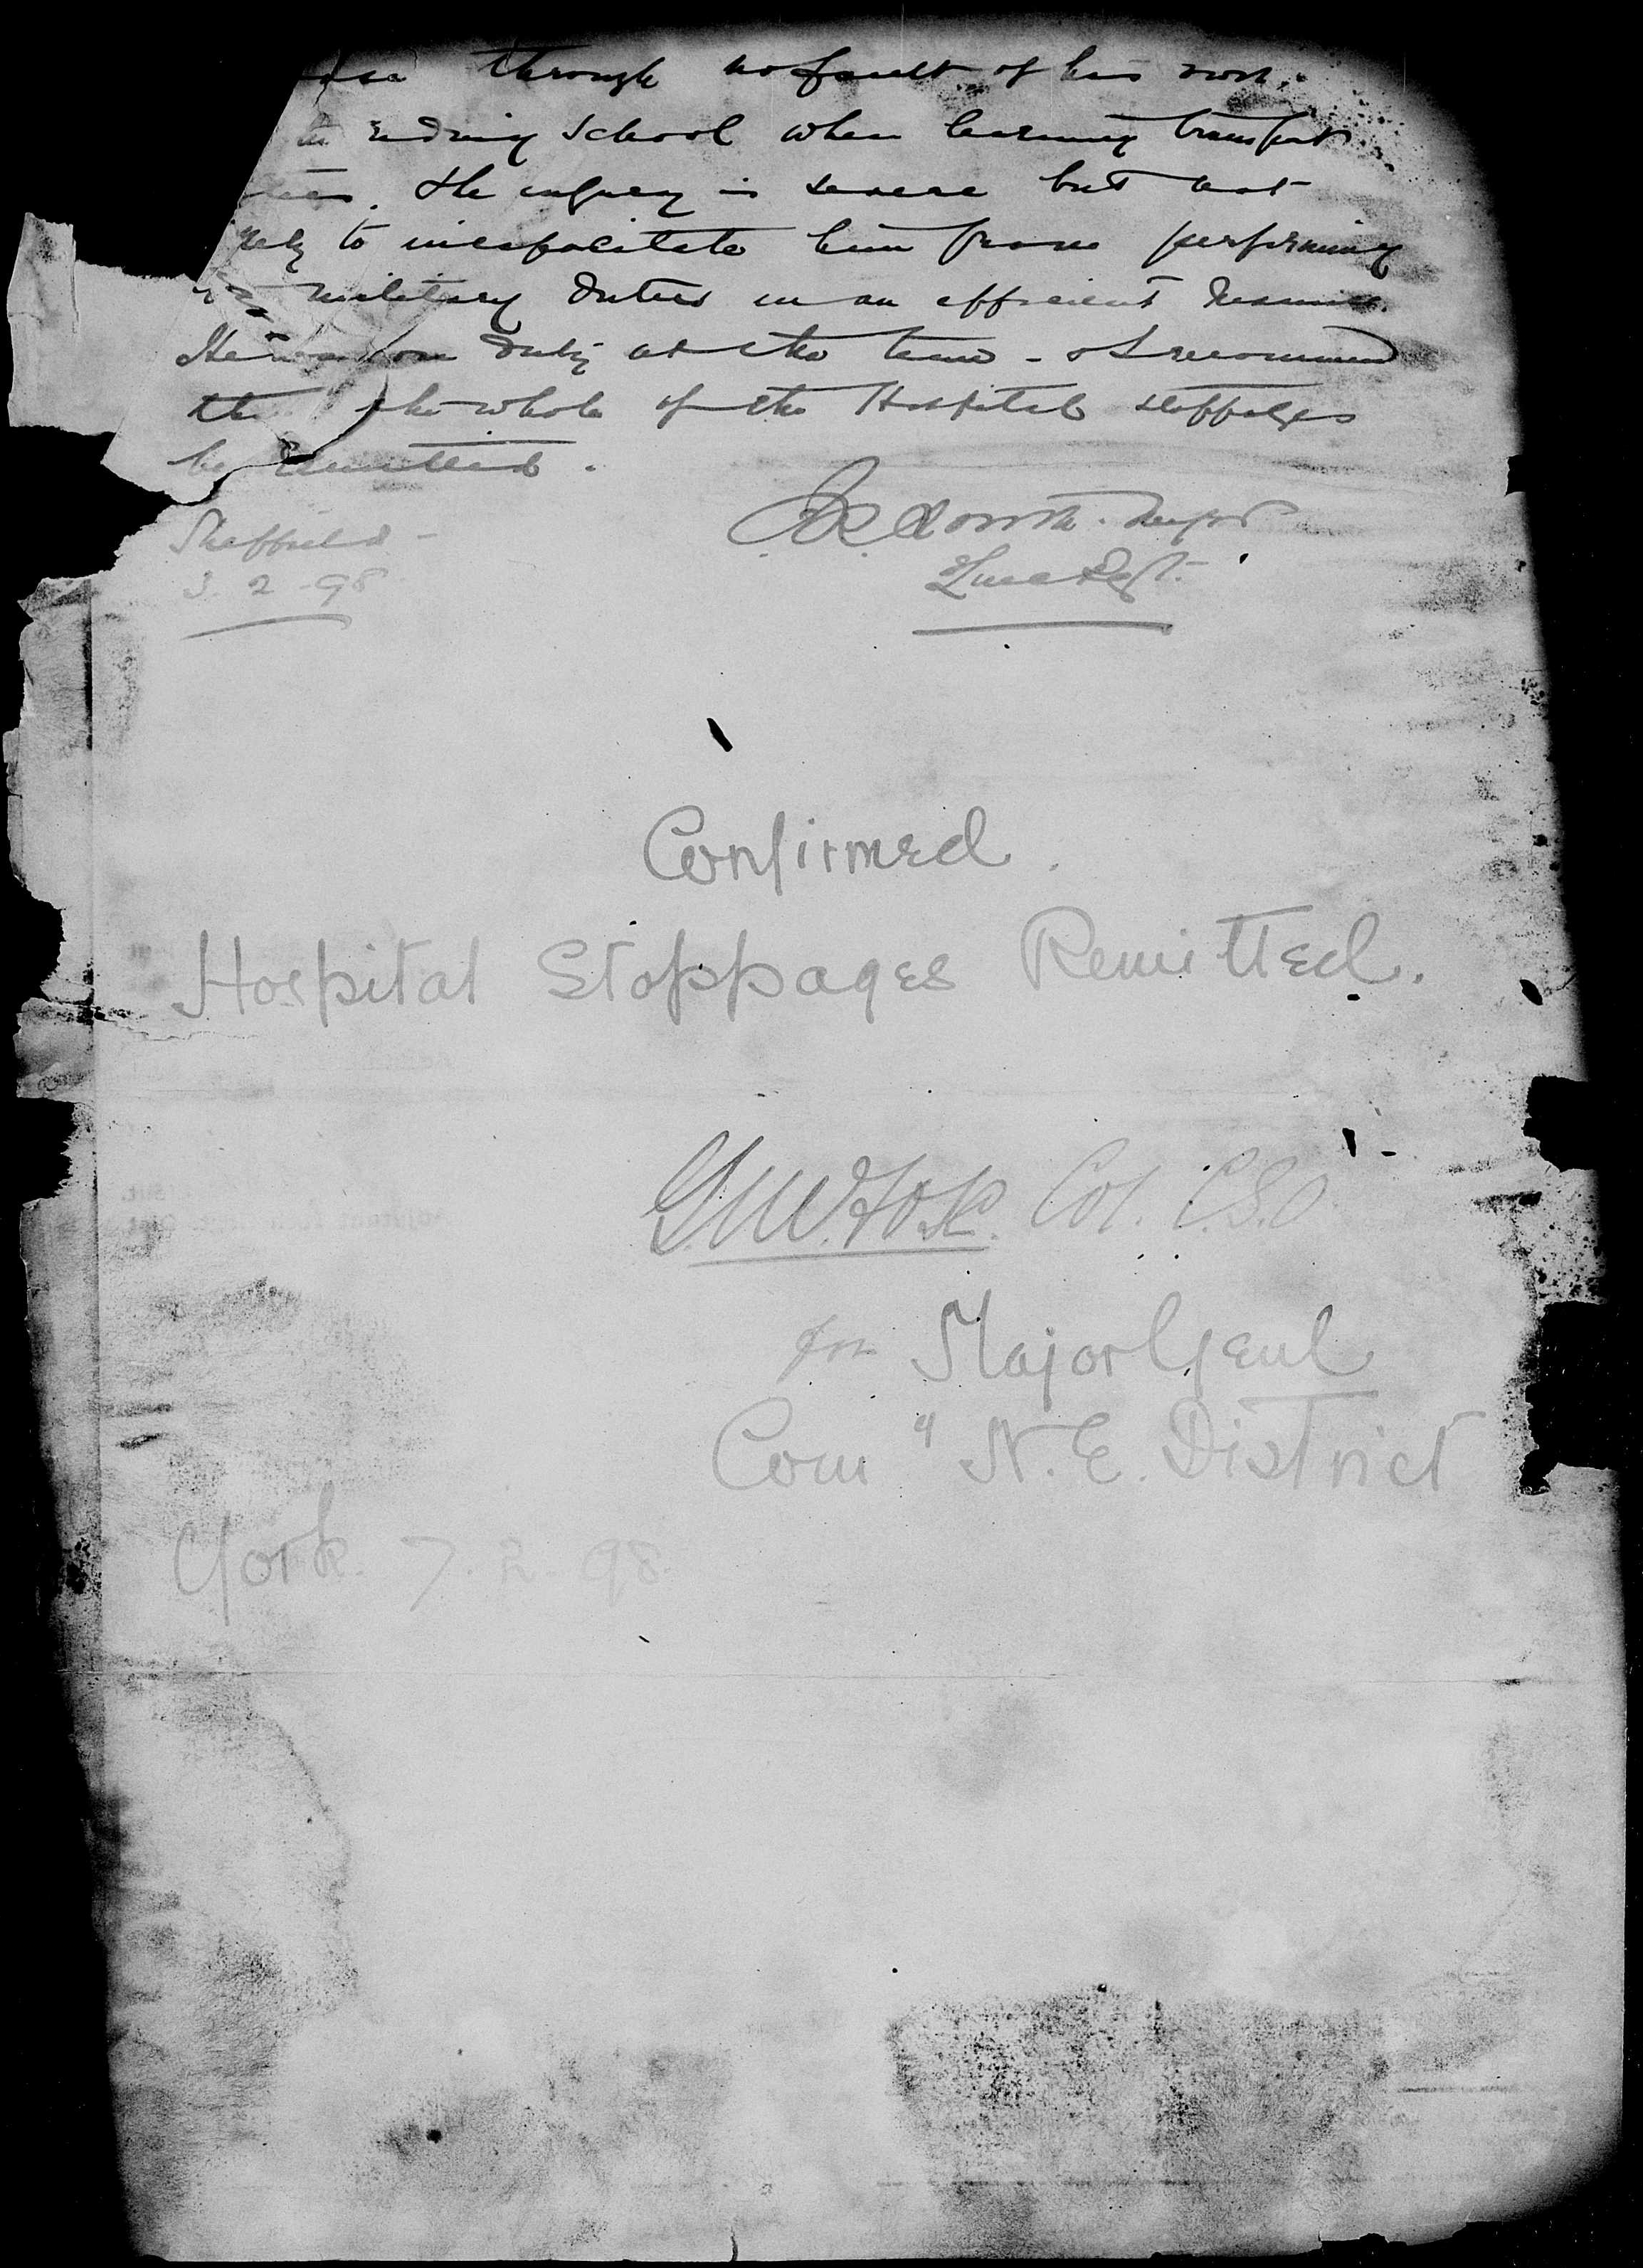 through no fault of his own,
riding School when learning transport
The injury is severe but not
to incapacitate him from performing
military duties in an efficient manner.
He was on duty at the time - & I recommend
the whole of the Hospital stoppages
be remitted.
Sheffield -
3. 2 - 98
Major
Confirmed.
Hospital Stoppages Remitted.
Col. C.S.O
for Major Genl
Com^g N. E. District
York. 7. 2. 98.